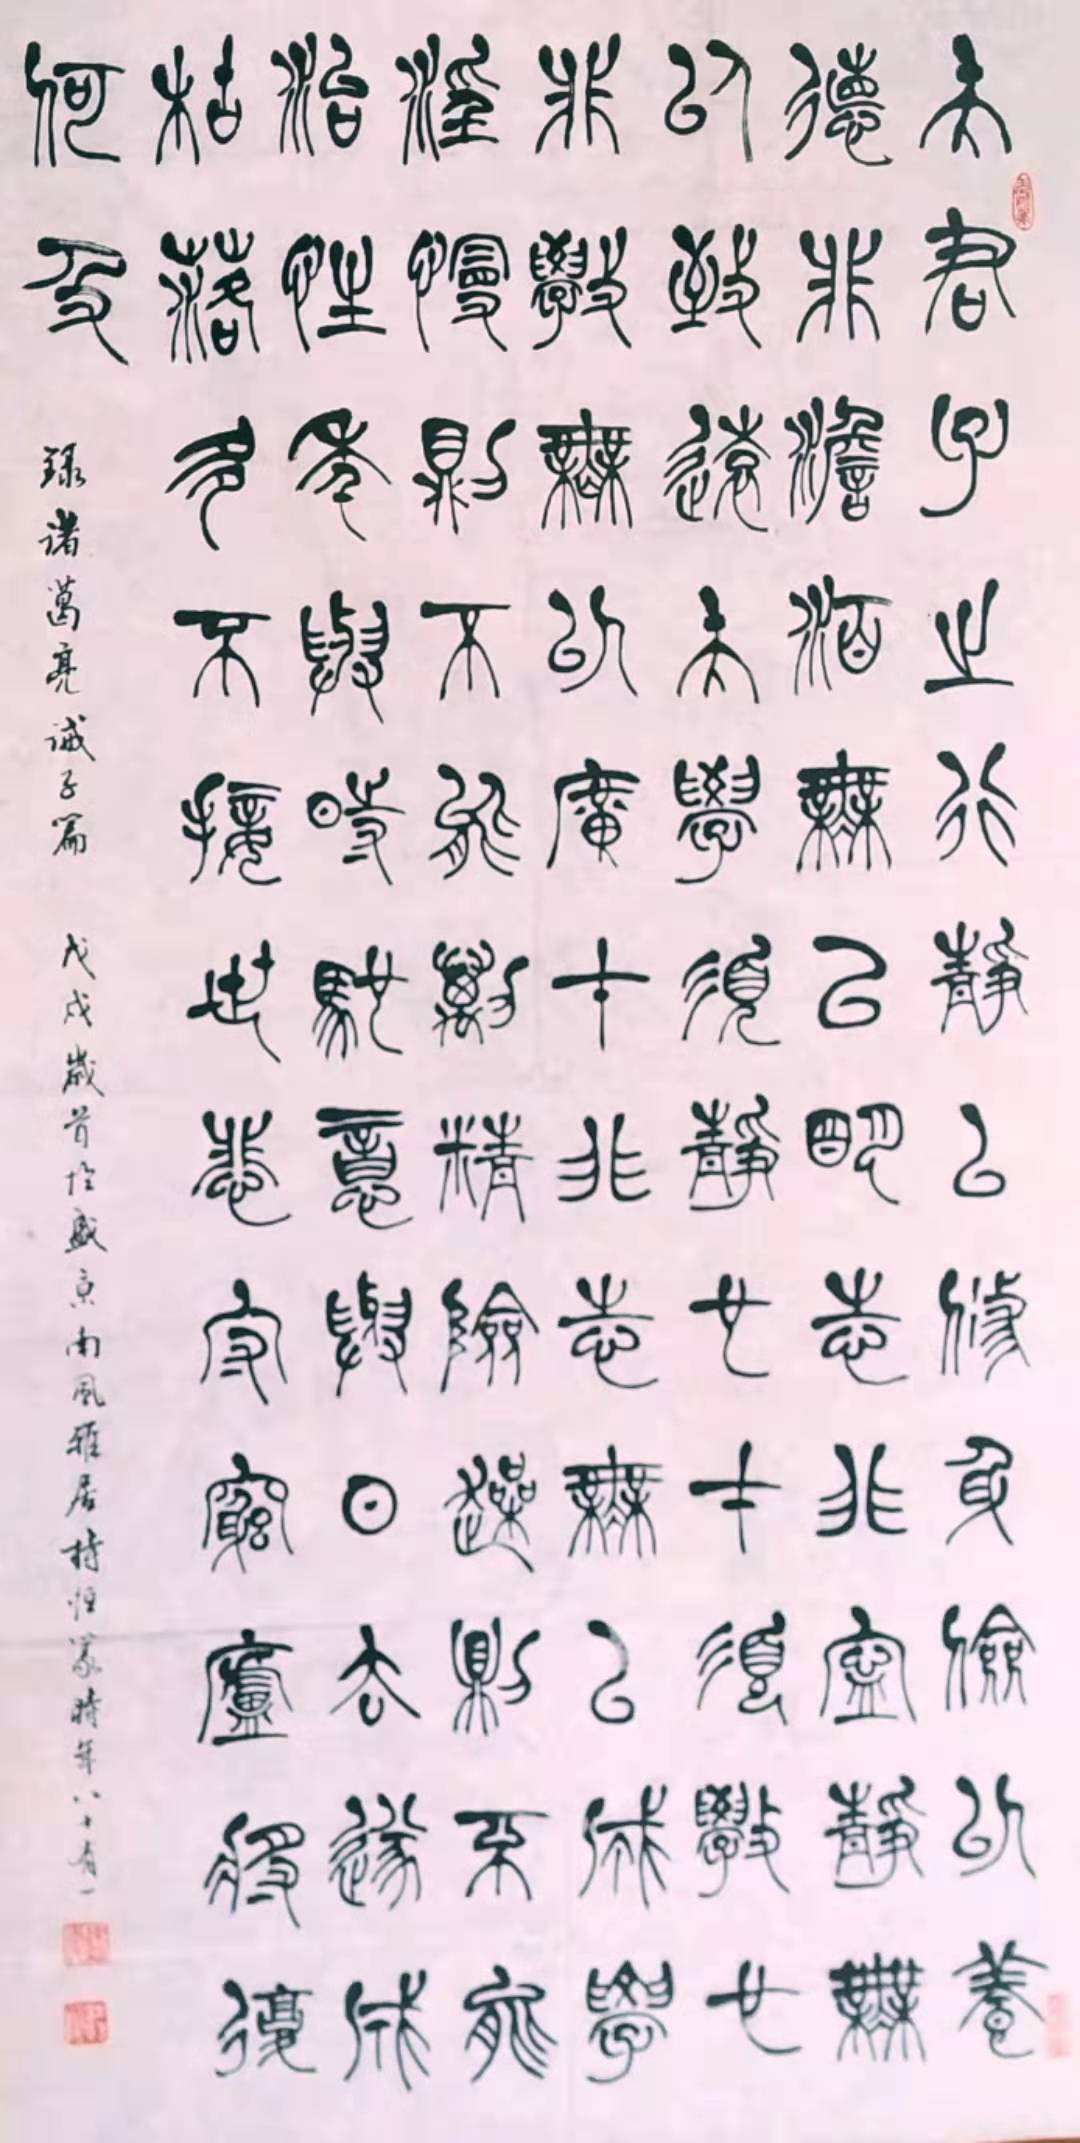 夫君子之行靜以修身儉以養
德非澹泊無以明志非寧靜無
以致遠夫學須靜也才須學也
非學無以廣才非志無以成學
淫慢則不能勵精險躁則不能
治性年與時馳意與日去遂成
枯落多不接世悲守窮廬將復
何及
錄諸葛亮誡子篇 戊戌歲首於盛京南風雅居持恒篆時年八十有一